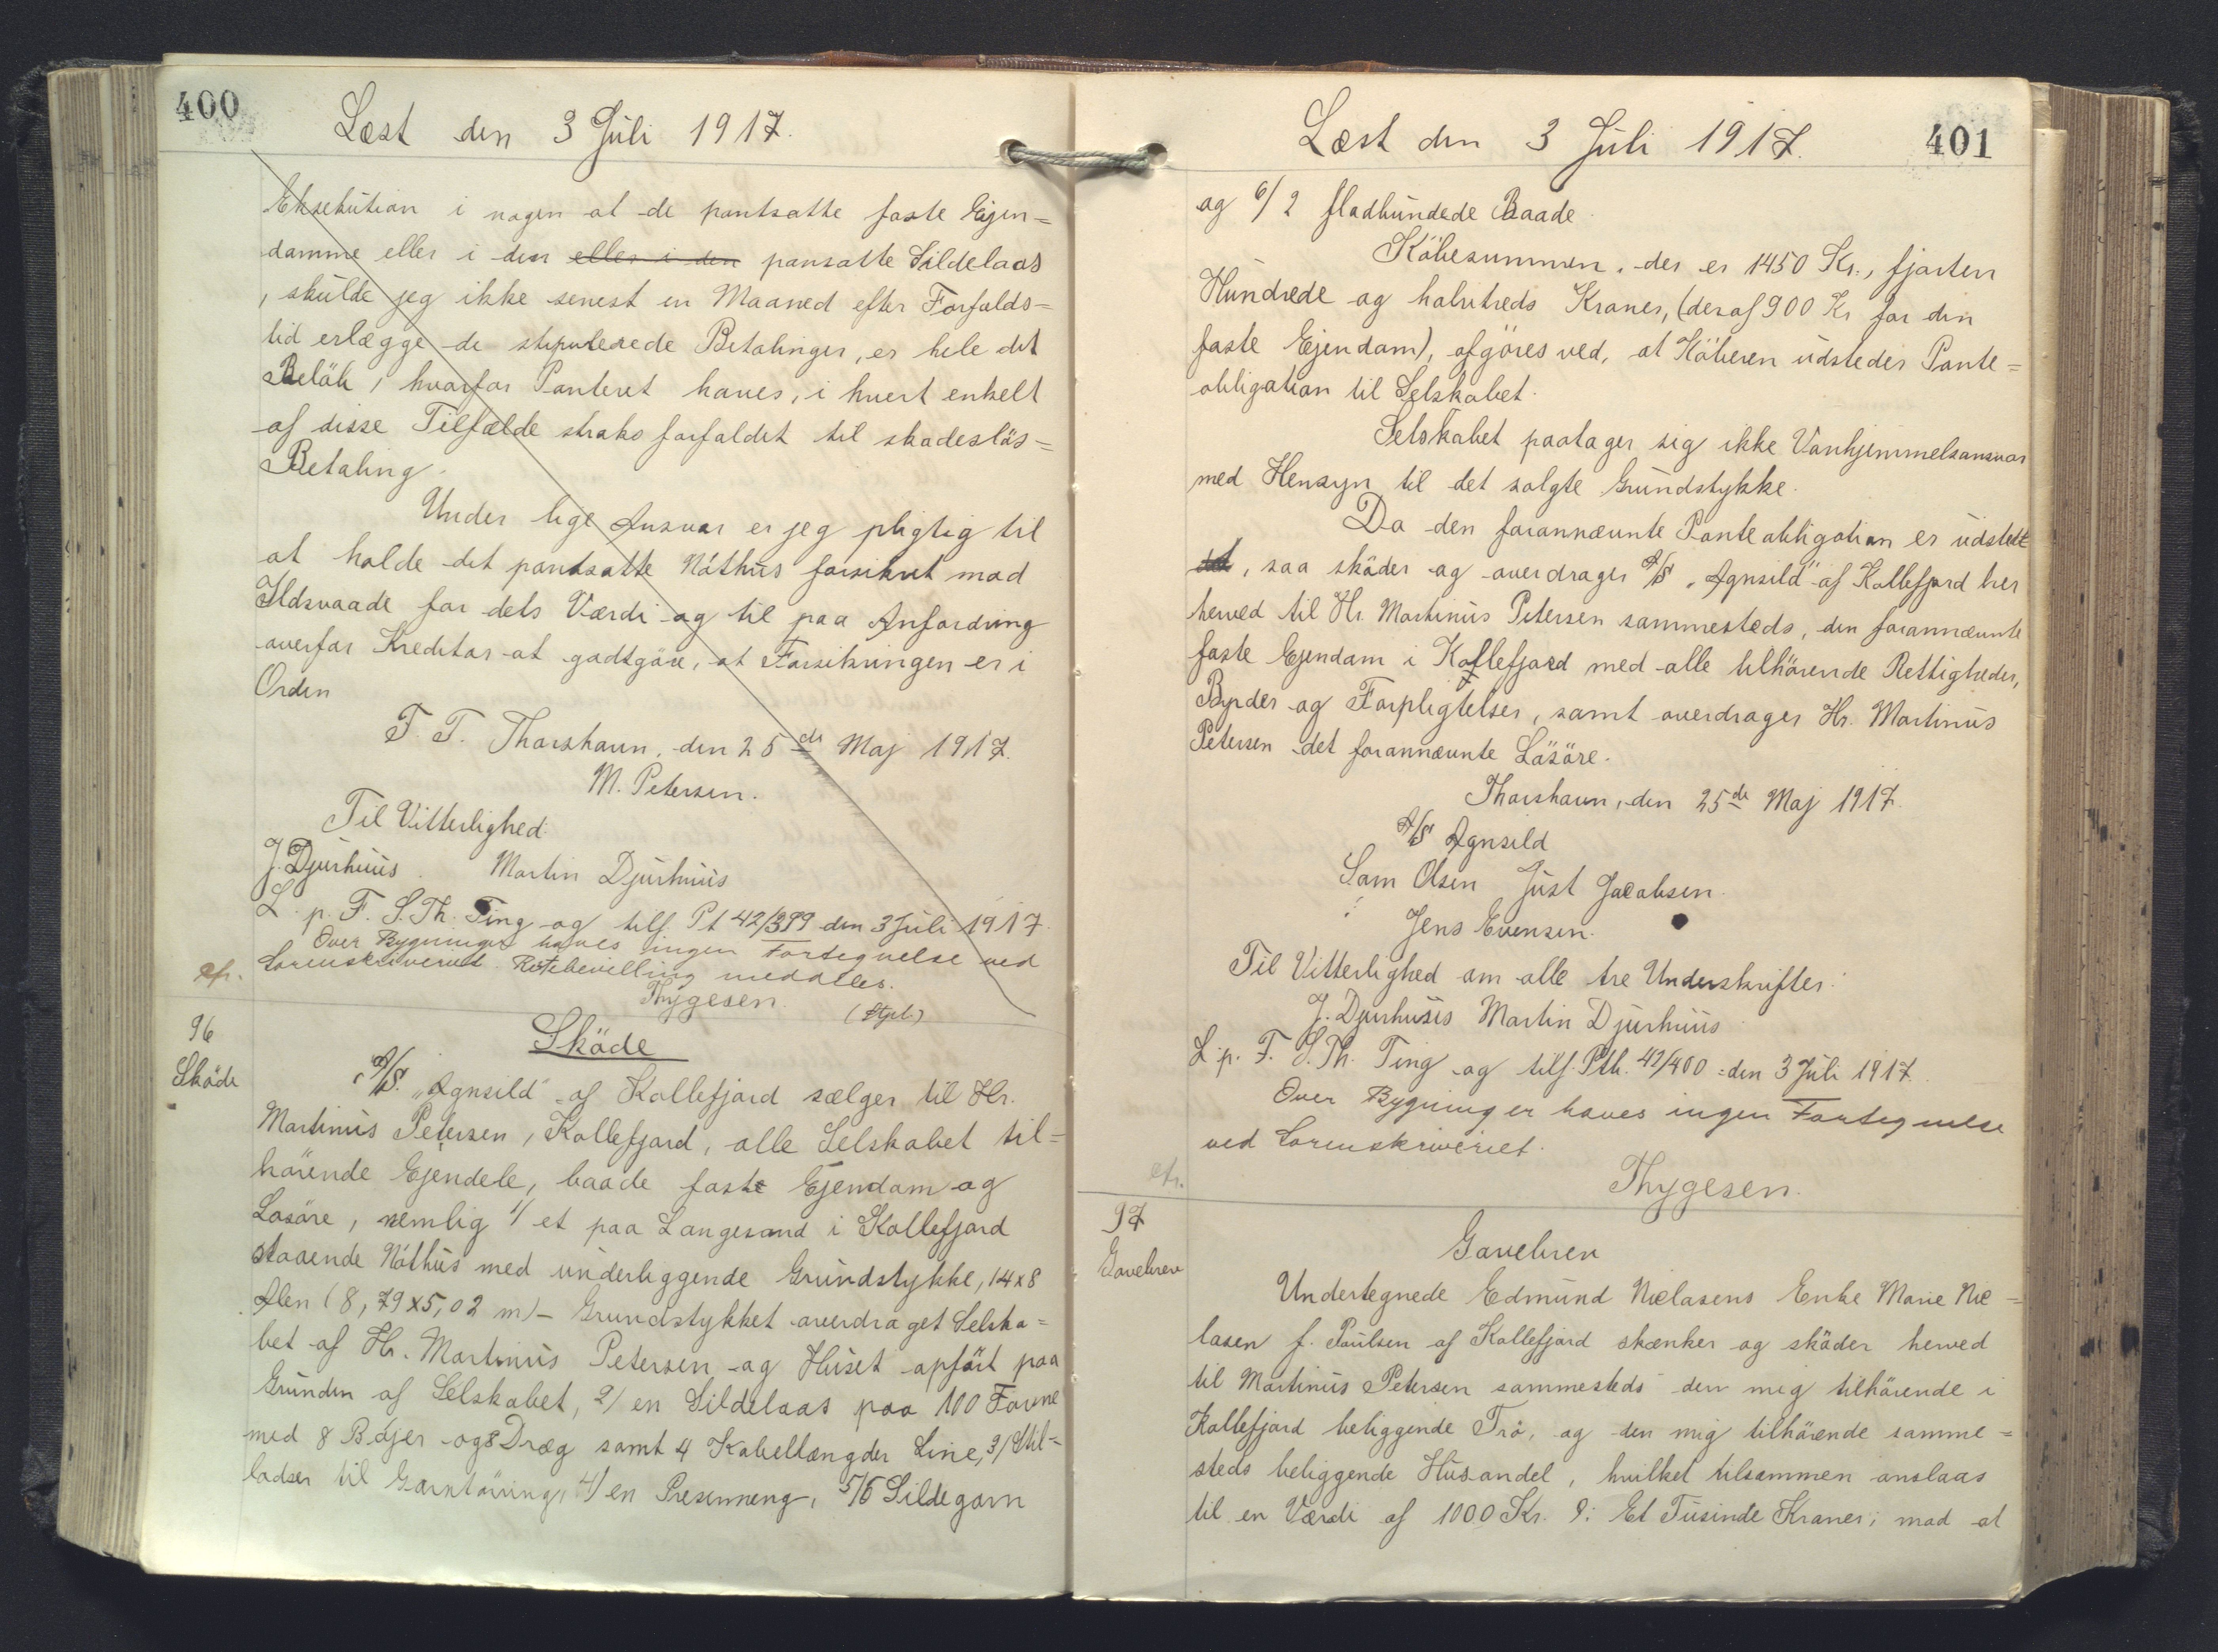 400
Læst den 3 Juli 1917.
Eksekution i nogen af de pantsatte faste Ejen=
domme eller i den eller i den pansatte Sildelaas
, skulde jeg ikke senest en Maaned efter Forfalds=
tid erlægge de stipulerede Betalinger, er hele det
Beløb, hvorfor Panteret haves, i hvert enkelt
af disse Tilfælde straks forfaldet til skadesløs=
Betaling.
Under lige Ansvar er jeg pligtig til
at holde det pantsatte Nóthús forsikret mod
Ildsvaade for dets Værdi og til paa Anfordring
overfor Kreditor at godtgøre, at Forsikringen er i
Orden
F. T. Thorshavn, den 25de Maj 1917.
M. Petersen.
Til Vitterlighed:
J. Djurhuus. Martin Djurhuus
L. p. F. S. Th. Ting og tilf. Pt 42/399 den 3 Juli 1917.
Over Bygninger haves ingen Fortegnelse ved
cfr. Sorenskriveriet. Retsbevilling meddeles.
Thygesen.
(Stpl.)
96
Skøde
Skøde
A/S. „Agnsild" af Kollefjord sælger til Hr.
Martinus Petersen, Kollefjord, alle Selskabet til=
hørende Ejendele, baade faste Ejendom og
Løsøre, nemlig 1/ et paa Langesand i Kollefjord
staaende Nóthus med underliggende Grundstykke, 14x8
Alen (8,79x5,02 m) – Grundstykket overdraget Selska=
bet af Hr. Martinus Petersen og Huset opført paa
Grunden af Selskabet, 2/ en Sildelaas paa 100 Favne
med 8 Bøjer og 8 Dræg samt 4 Kabellængder Line, 3/ Stil=
ladser til Garntørring, 4/ en Presenneng, 5/ 6 Sildegarn
401
Læst den 3 Juli 1917.
og 6/ 2 fladbundede Baade.
Købesummen, der er 1450 Kr., fjorten
Hundrede og halvtreds Kroner, (deraf 900 Kr for den
faste Ejendom), afgøres ved, at Køberen udsteder Pante=
obligation til Selskabet.
Selskabet paatager sig ikke Vanhjemmelsansvar
med Hensyn til det solgte Grundstykke.
Da den forannævnte Panteobligation er udstedt
, saa skøder og overdrager A/S „Agnsild" af Kollefjord her
herved til Hr. Martinus Petersen sammesteds, den forannævnte
faste Ejendom i Kollefjord med alle tilhørende Rettigheder,
Byrder og Forpligtelser, samt overdrager Hr. Martinus
Petersen det forannævnte Løsøre.
Thorshavn, den 25de Maj 1917.
A/S Agnsild
Sam Olsen Just Jacobsen.
Jens Evensen.
Til Vitterlighed om alle tre Underskrifter:
J. Djurhuus Martin Djurhuus
L. p. F. S. Th. Ting og tilf. Ptb. 42/400 den 3 Juli 1917.
Over Bygninger haves ingen Fortegnelse
ved Sorenskriveriet.
cfr.
Thygesen.
97
Gavebrev
Gavebrev
Undertegnede Edmund Nielasens Enke Marie Nie=
lasen f. Poulsen af Kollefjord skænker og skøder herved
til Martinus Petersen sammesteds den mig tilhørende i
Kollefjord beliggende Trø, og den mig tilhørende samme=
steds beliggende Húsandel, hvilket tilsammen anslaas
til en Værdi af 1000 Kr. ɔ: Et Tusinde Kroner; mod at